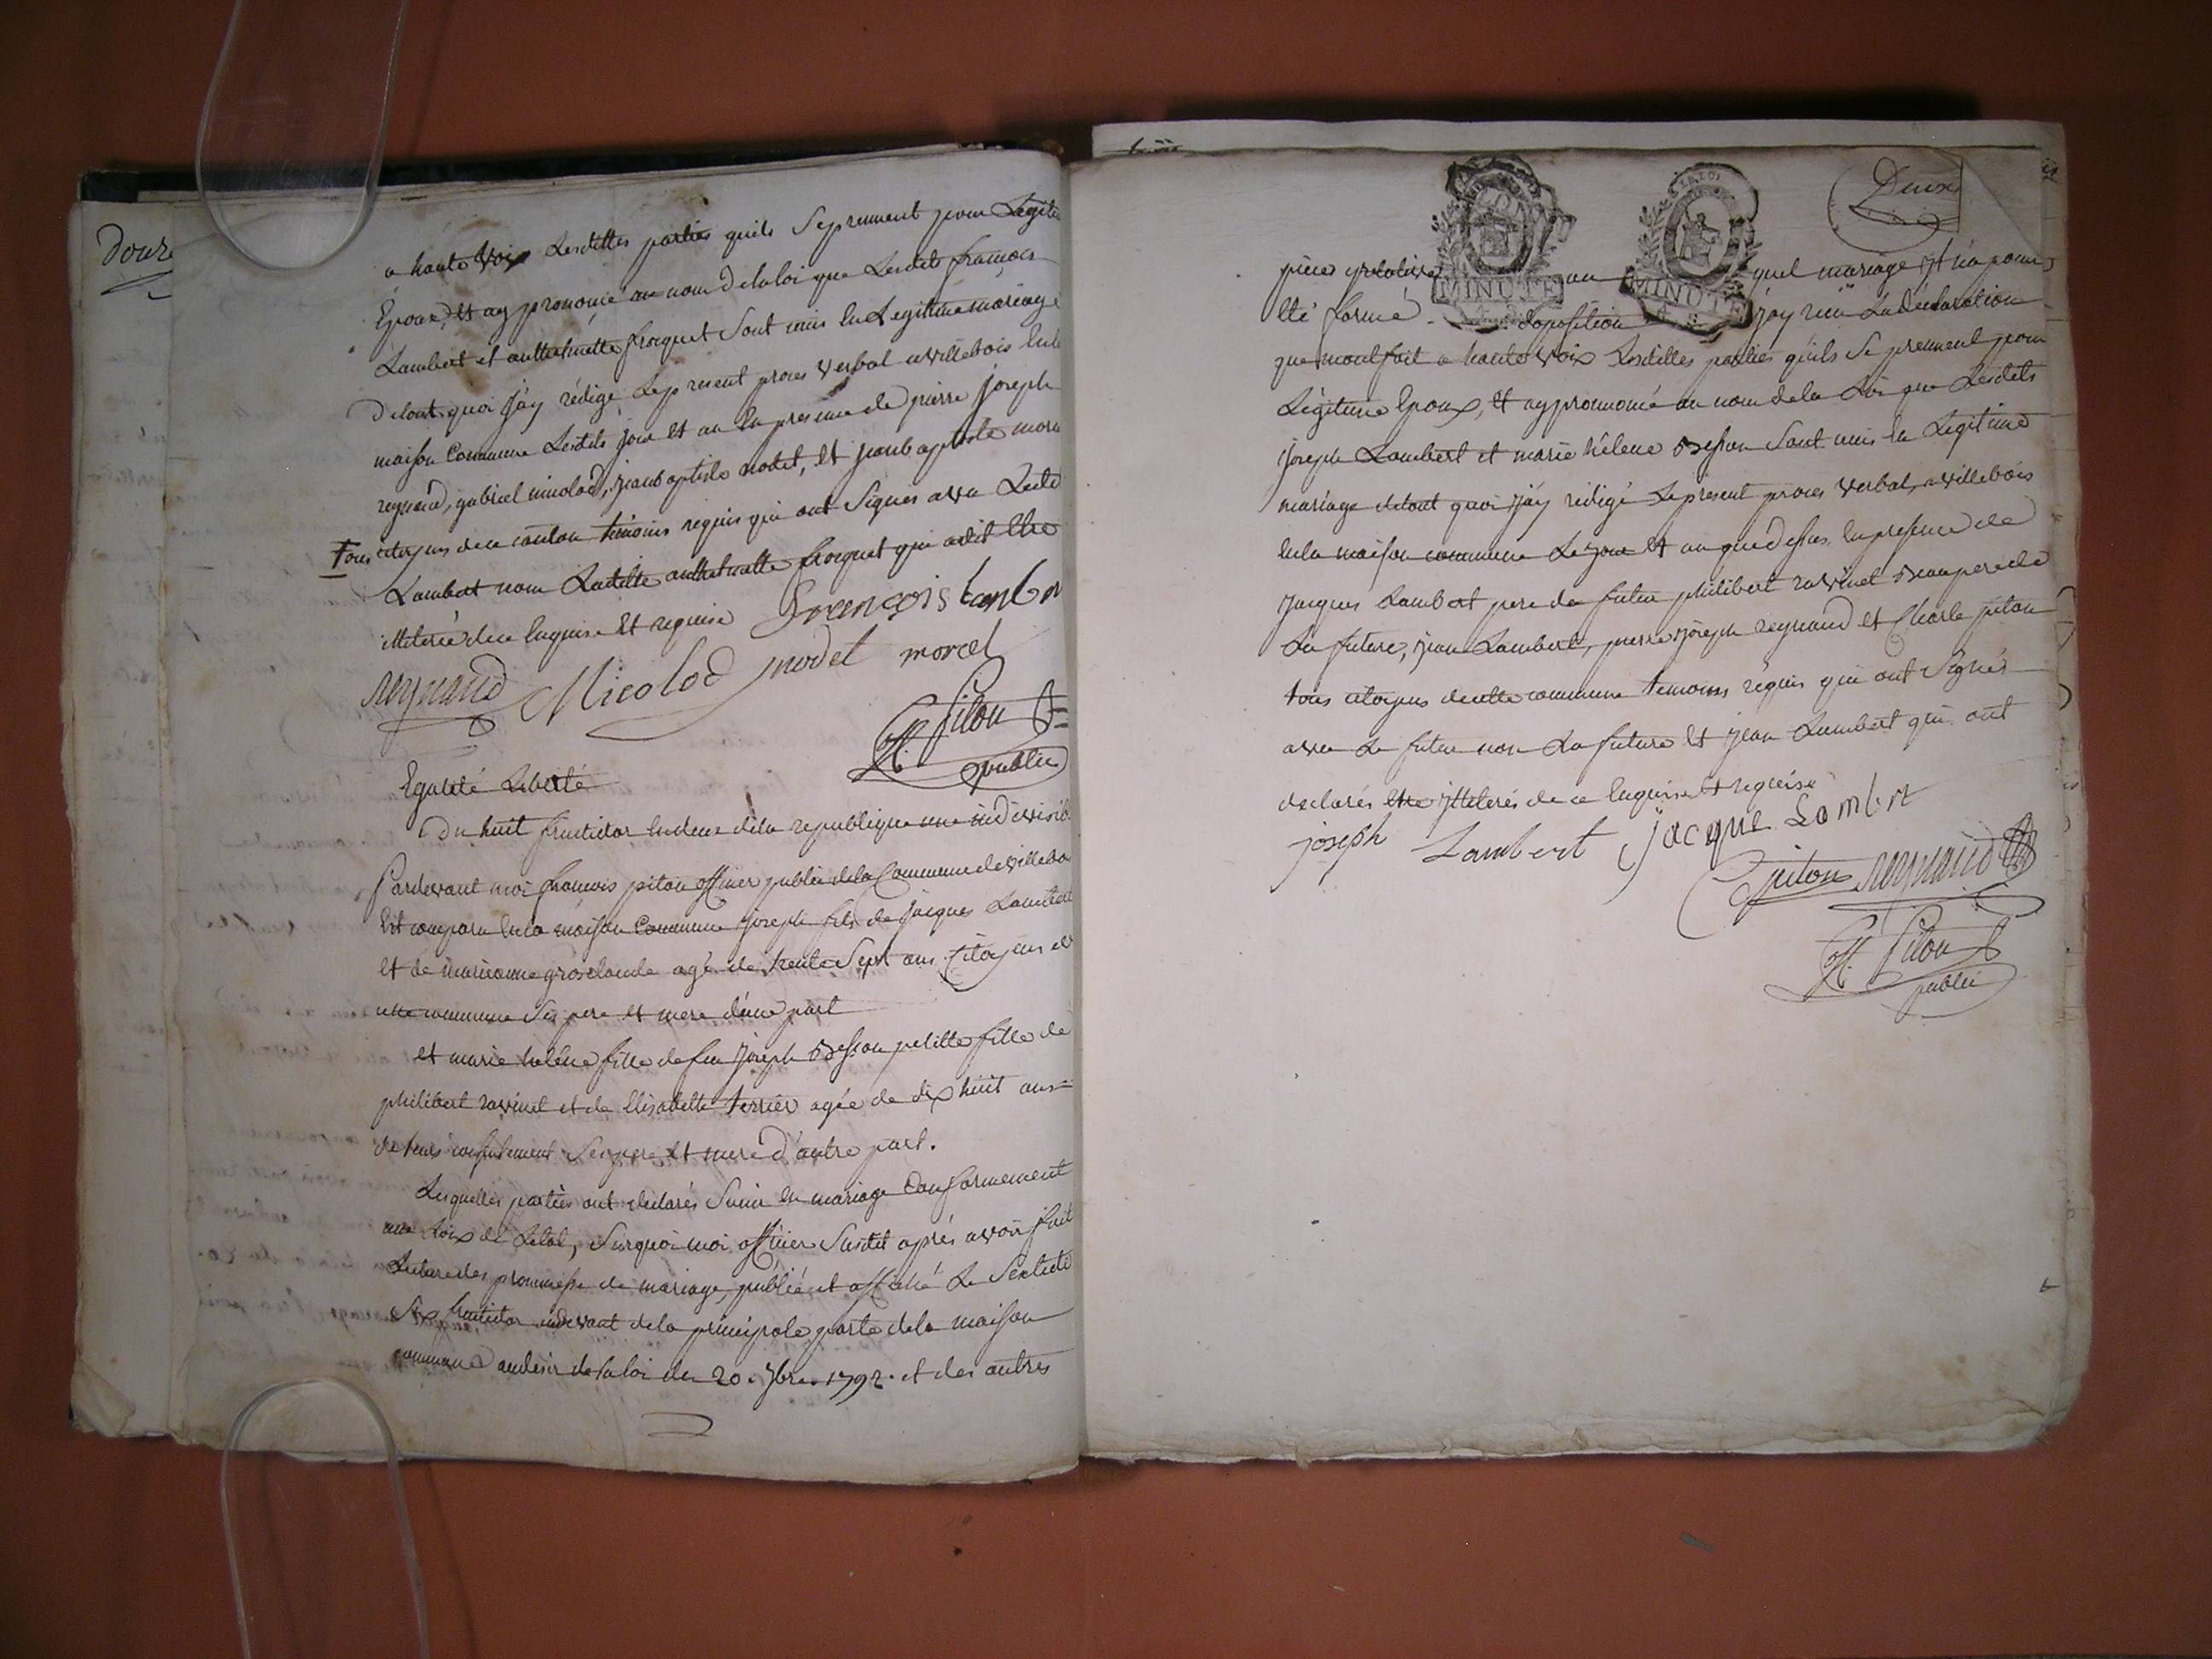 douze
a haute voix Lesdittes parties quils Seprennent pour Legiti
Epoux, et ay prononcé au nom de la loi que Lesdits françois
Lambert et anthelmette froquet Sont unis En Legitime mariage
de tout quoi j'ay rédigé Le present proces verbal a villebois En la
maison Commune Lesdits jour et an En presence de pierre joseph
reynaud, gabriel nicolod, jean baptiste nodet, et jean baptiste morel
tous citoyens de ce canton témoins requis qui ont Signés avec Ledit
Lambert non Laditte anthelmette froquet qui a dit Etre
illiterée de ce Enquise Et requise francois Lambr
reynaud Nicolod nodet morel
off. Piton
public
Egalité Liberté
Du huit fructidor an deux de la republique une indivisib
Pardevant moi francois piton officier public de la Commune de villebo
Est comparu En la maison Commune joseph fils de jacques Lambert
et de marianne grosclaude agé de trente Sept ans Citoyens de
cette commune Ses pere et mere d'une part
Et marie helêne fille de feu joseph Besson petitte fille de
philibert ravinel et de Elisabette terrier agée de dix huit ans
de leurs consentement Ses pere et mere d'autre part.
Lesquelles parties ont declarés S'unir En mariage Conformement
aux Loix de Letat, Surquoi moi officier Susdit aprés avoir fait
Lecture des promesse de mariage, publié et affiché Le Sextidi
Six fructidor audevant de la principale porte de la maison
commune au desir de la loi du 20. 7bre. 1792. et des autres
Deux
MINUTE
MINUTE
pieces relatives au quel mariage Il n'a point
Eté formé d'oposition j'ay recu La declaration
que m'ont fait a haute voix Lesdittes parties quils Se prennent pour
Légitime Epoux, Et ay prononcé au nom de la Loi que Lesdits
joseph Lambert et marie hélene Besson Sont unis En Legitime
mariage de tout quoi j'ay rédigé Le present proces verbal, a villebois
En la maison commune Le jour Et an que dessus En presence de
jacques Lambert pere du futur philibert ravinel Beaupere de
La future, jean Lambert, pierre joseph reynaud et Charle piton
tous citoyens de cette commune temoins requis qui ont Signés
avec Le futur non La future Et jean Lambert qui ont
declarés Etre illiterés de ce Enquise Et requise
joseph Lambert jacque Lombr
C piton reynaud
off. Piton
public